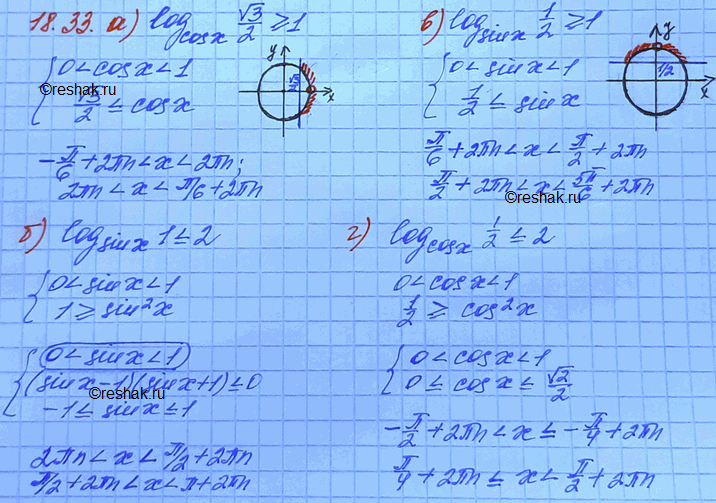 18.33. а) log_cosx √3/2 ≥ 1
{ 0 < cosx < 1
√3/2 ≤ cosx
©reshak.ru
y
x
√3/2
-π/6 + 2πn < x < 2πn;
2πn < x < π/6 + 2πn
в) log_sinx 1/2 ≥ 1
{ 0 < sinx < 1
1/2 ≤ sinx
y
x
1/2
π/6 + 2πn < x < π/2 + 2πn
π/2 + 2πn < x < 5π/6 + 2πn
©reshak.ru
б) log_sinx 1 ≤ 2
{ 0 < sinx < 1
1 ≥ sin²x
{ 0 < sinx < 1
(sinx-1)(sinx+1) ≤ 0
-1 ≤ sinx ≤ 1
©reshak.ru
2πn < x < π/2 + 2πn
π/2 + 2πn < x < π + 2πn
г) log_cosx 1/2 ≤ 2
0 < cosx < 1
1/2 ≥ cos²x
{ 0 < cosx < 1
0 ≤ cosx ≤ √2/2
-π/2 + 2πn < x ≤ -π/4 + 2πn
π/4 + 2πn ≤ x < π/2 + 2πn